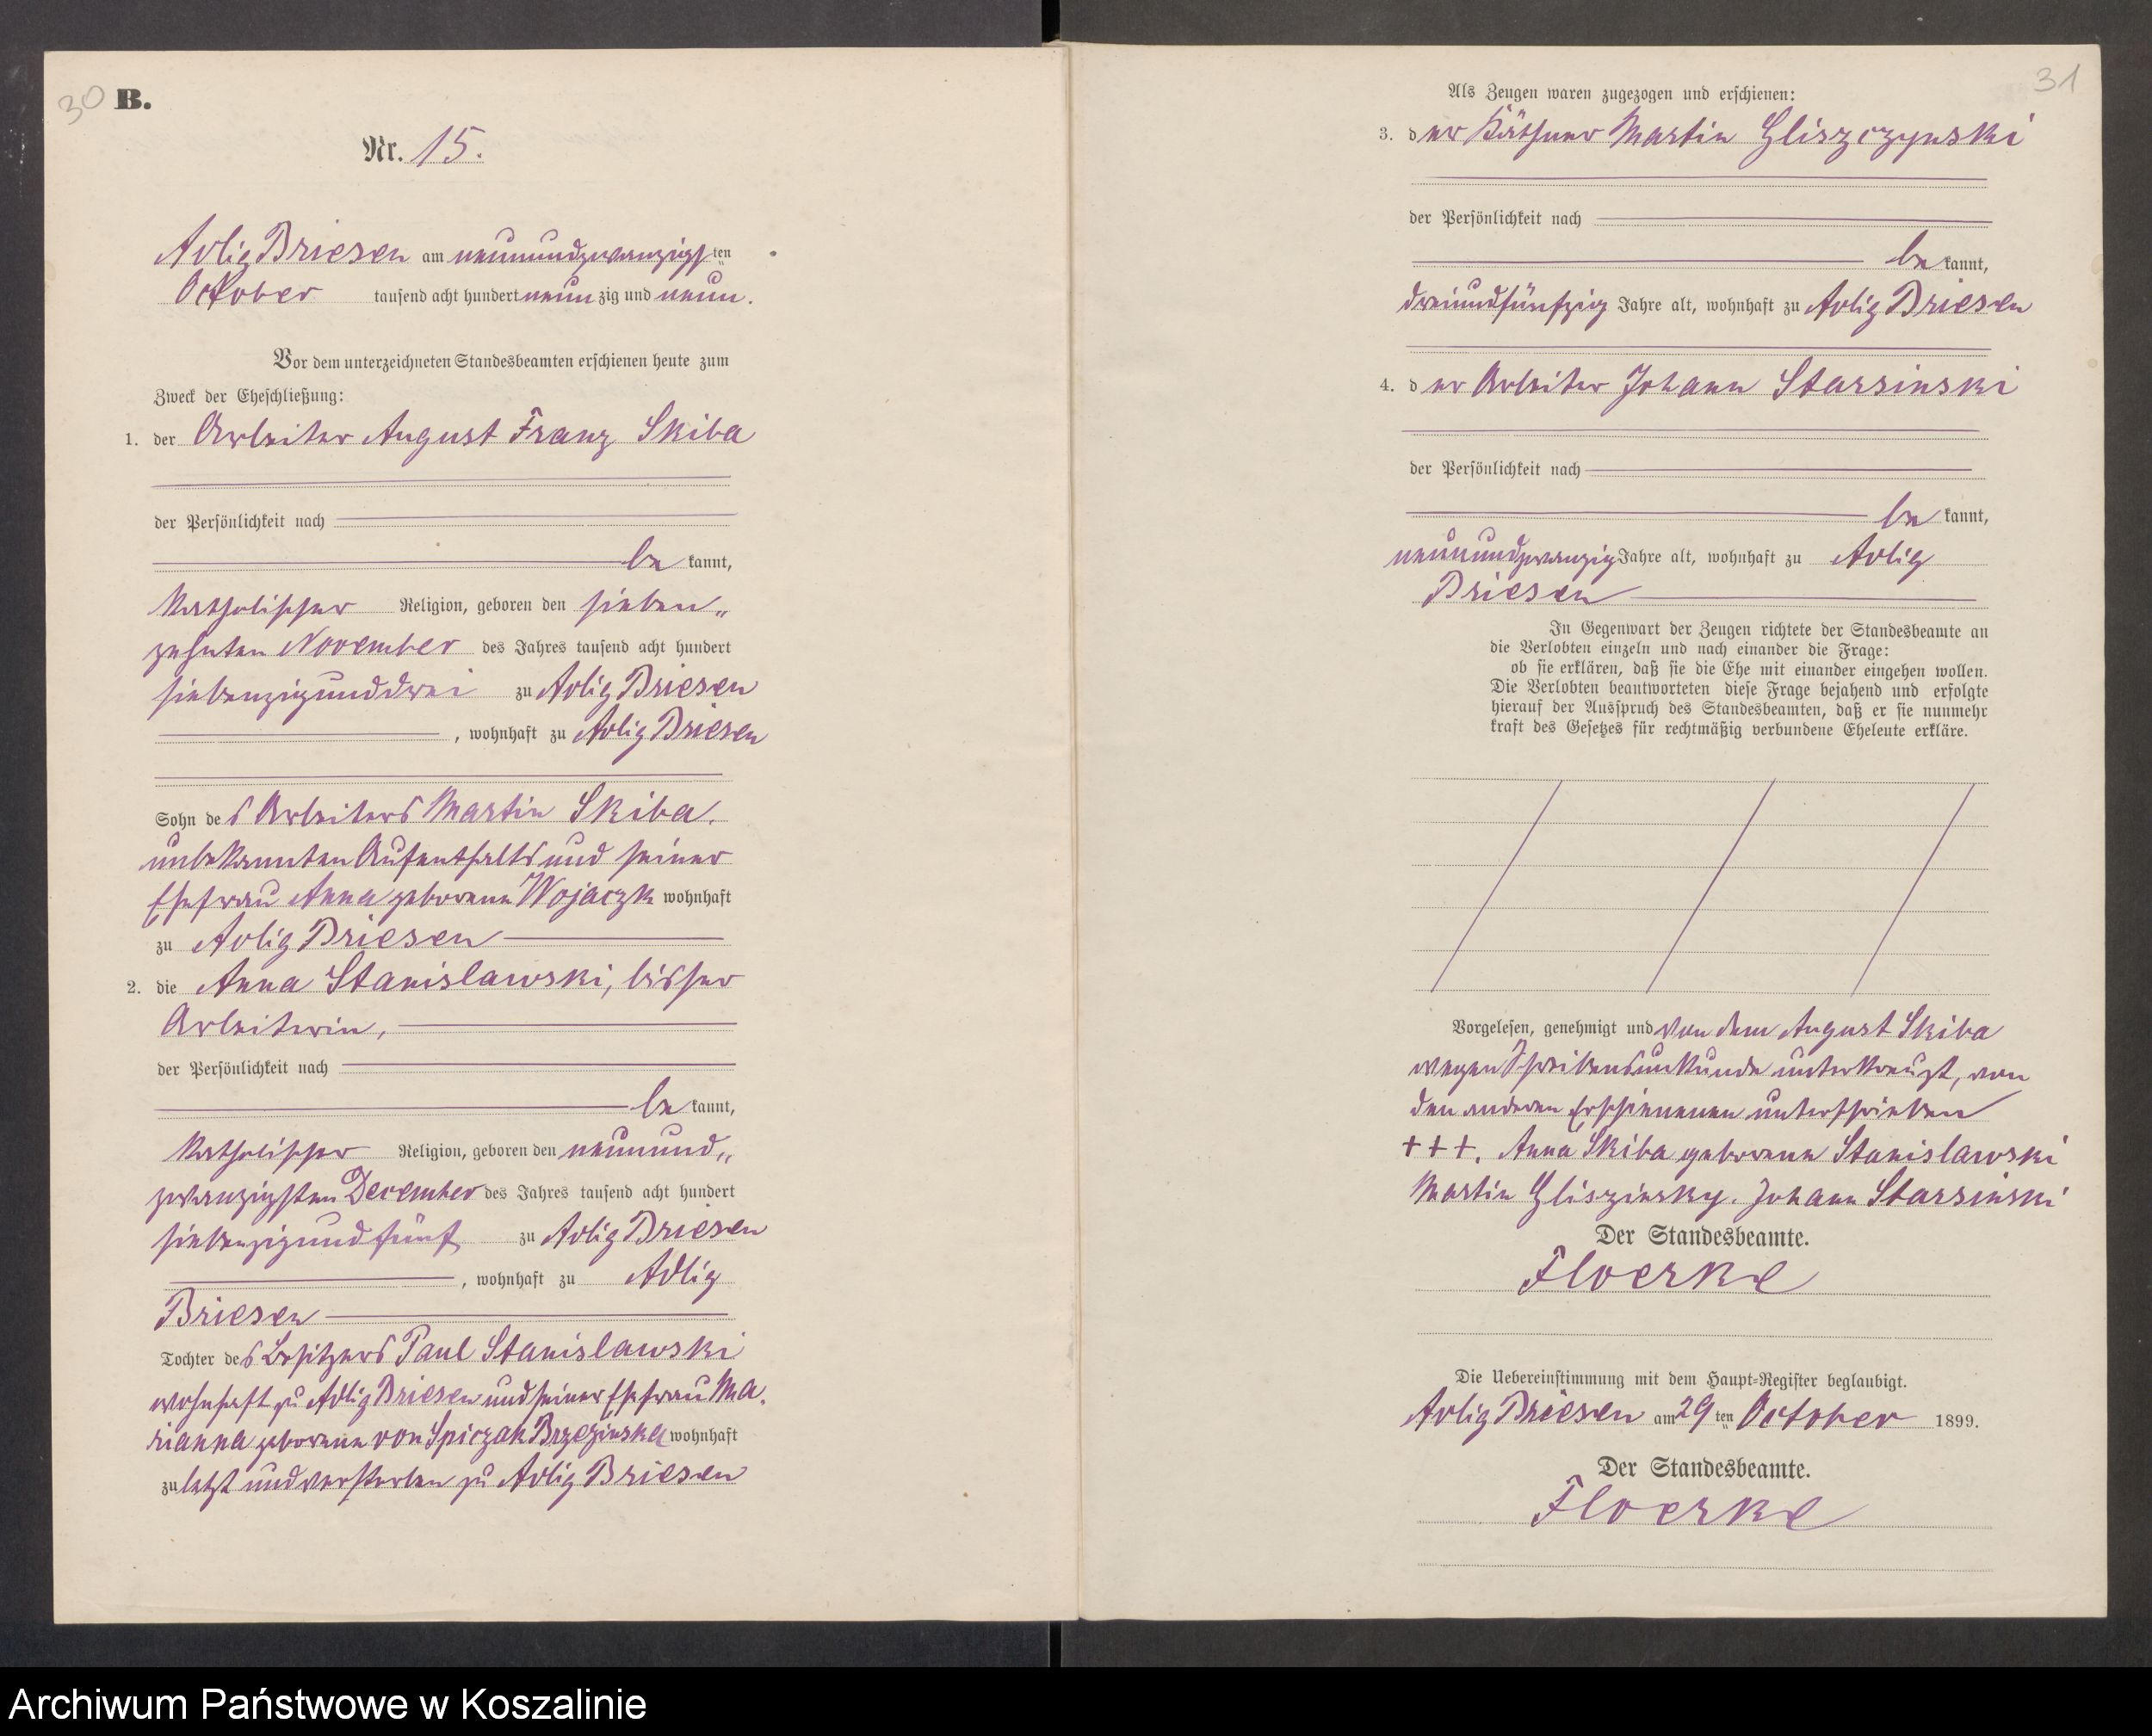 30 B.
Nr. 15.
Adlig Briesen am neunundzwanzigsten
October tausend acht hundert neunzig und neun.
Vor dem unterzeichneten Standesbeamten erschienen heute zum
Zweck der Eheschließung:
1. der Arbeiter August Franz Skiba
der Persönlichkeit nach
bekannt,
katholischer Religion, geboren den sieben„
zehnten November des Jahres tausend acht hundert
siebenzig und drei zu Adlig Briesen
, wohnhaft zu Adlig Briesen
Sohn des Arbeiters Martin Skiba,
unbekannten Aufenthalts und seiner
Ehefrau Anna geborene Wojaczk wohnhaft
zu Adlig Briesen
2. die Anna Stanislawski, bisher
Arbeiterin,
der Persönlichkeit nach
bekannt,
katholischer Religion, geboren den neunund„
zwanzigsten December des Jahres tausend acht hundert
siebenzig und fünf zu Adlig Briesen
, wohnhaft zu Adlig
Briesen
Tochter des Besitzers Paul Stanislawski
wohnhaft zu Adlig Briesen und seiner Ehefrau Ma.
rianna geborene von Spiczak Brzezinska wohnhaft
zuletzt und verstorben zu Adlig Briesen
31
Als Zeugen waren zugezogen und erschienen:
3. der Käthner Martin Gliszczynski
der Persönlichkeit nach
bekannt,
dreiundfünfzig Jahre alt, wohnhaft zu Adlig Briesen
4. der Arbeiter Johann Starsinski
der Persönlichkeit nach
bekannt,
neunundzwanzig Jahre alt, wohnhaft zu Adlig
Briesen
In Gegenwart der Zeugen richtete der Standesbeamte an
die Verlobten einzeln und nach einander die Frage:
ob sie erklären, daß sie die Ehe mit einander eingehen wollen.
Die Verlobten beantworteten diese Frage bejahend und erfolgte
hierauf der Ausspruch des Standesbeamten, daß er sie nunmehr
kraft des Gesetzes für rechtmäßig verbundene Eheleute erkläre.
Vorgelesen, genehmigt und von dem August Skiba
wegen Schreibensunkunde unterkreuzt, von
den anderen Erschienenen unterschrieben
+++. Anna Skiba geborene Stanislawski
Martin Gliszinsky. Johann Starsinski
Der Standesbeamte.
Floerke
Die Uebereinstimmung mit dem Haupt-Register beglaubigt.
Adlig Briesen am 29ten October 1899.
Der Standesbeamte.
Floerke
Archiwum Państwowe w Koszalinie